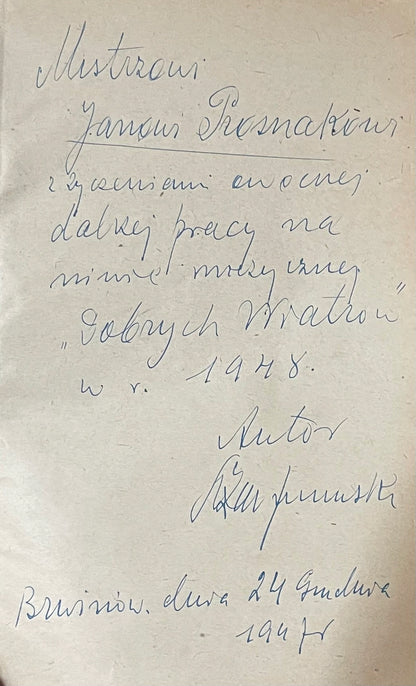 Mistrzowi
Janowi Prosnakowi
z życzeniami owocnej
dalszej pracy na
niwie muzycznej
"Dobrych Wiatrów"
w r. 1948.
Autor
Brwinów. dnia 24 Grudnia
1947 r